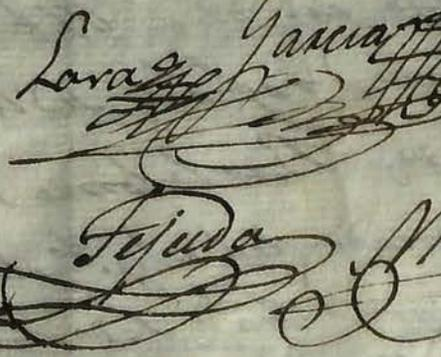 Lara Garcia
Tejada